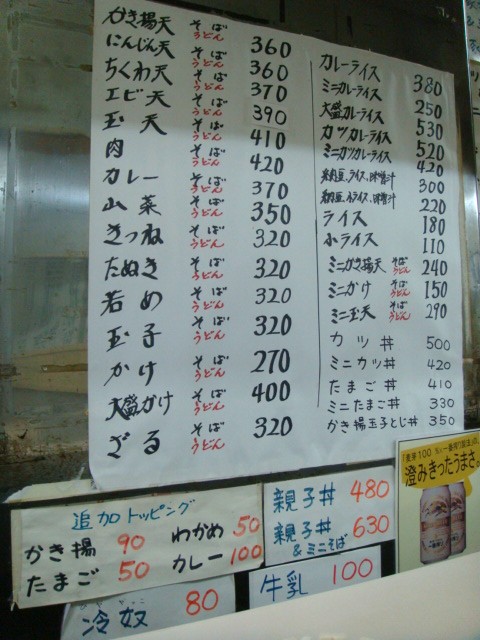 かき揚天 そば うどん 360
にんじん天 そば うどん 360
ちくわ天 そば うどん 370
エビ天 そば うどん 390
玉天 そば うどん 410
肉 そば うどん 420
カレー そば うどん 370
山菜 そば うどん 350
きつね そば うどん 320
たぬき そば うどん 320
若め そば うどん 320
玉子 そば うどん 320
かけ そば うどん 270
大盛かけ そば うどん 400
ざる そば うどん 320
カレーライス 380
ミニカレーライス 250
大盛カレーライス 530
カツカレーライス 520
ミニカツカレーライス 420
納豆、ライス、味噌汁 300
納豆、小ライス、味噌汁 220
ライス 180
小ライス 110
ミニかき揚天 そば うどん 240
ミニかけ そば うどん 150
ミニ玉天 そば うどん 290
カツ丼 500
ミニカツ丼 420
たまご丼 410
ミニたまご丼 330
かき揚玉子とじ丼 350
追加トッピング
かき揚 90 わかめ 50
たまご 50 カレー 100
冷奴 80
親子丼 480
親子丼 & ミニそば 630
牛乳 100
澄みきったうまさ。